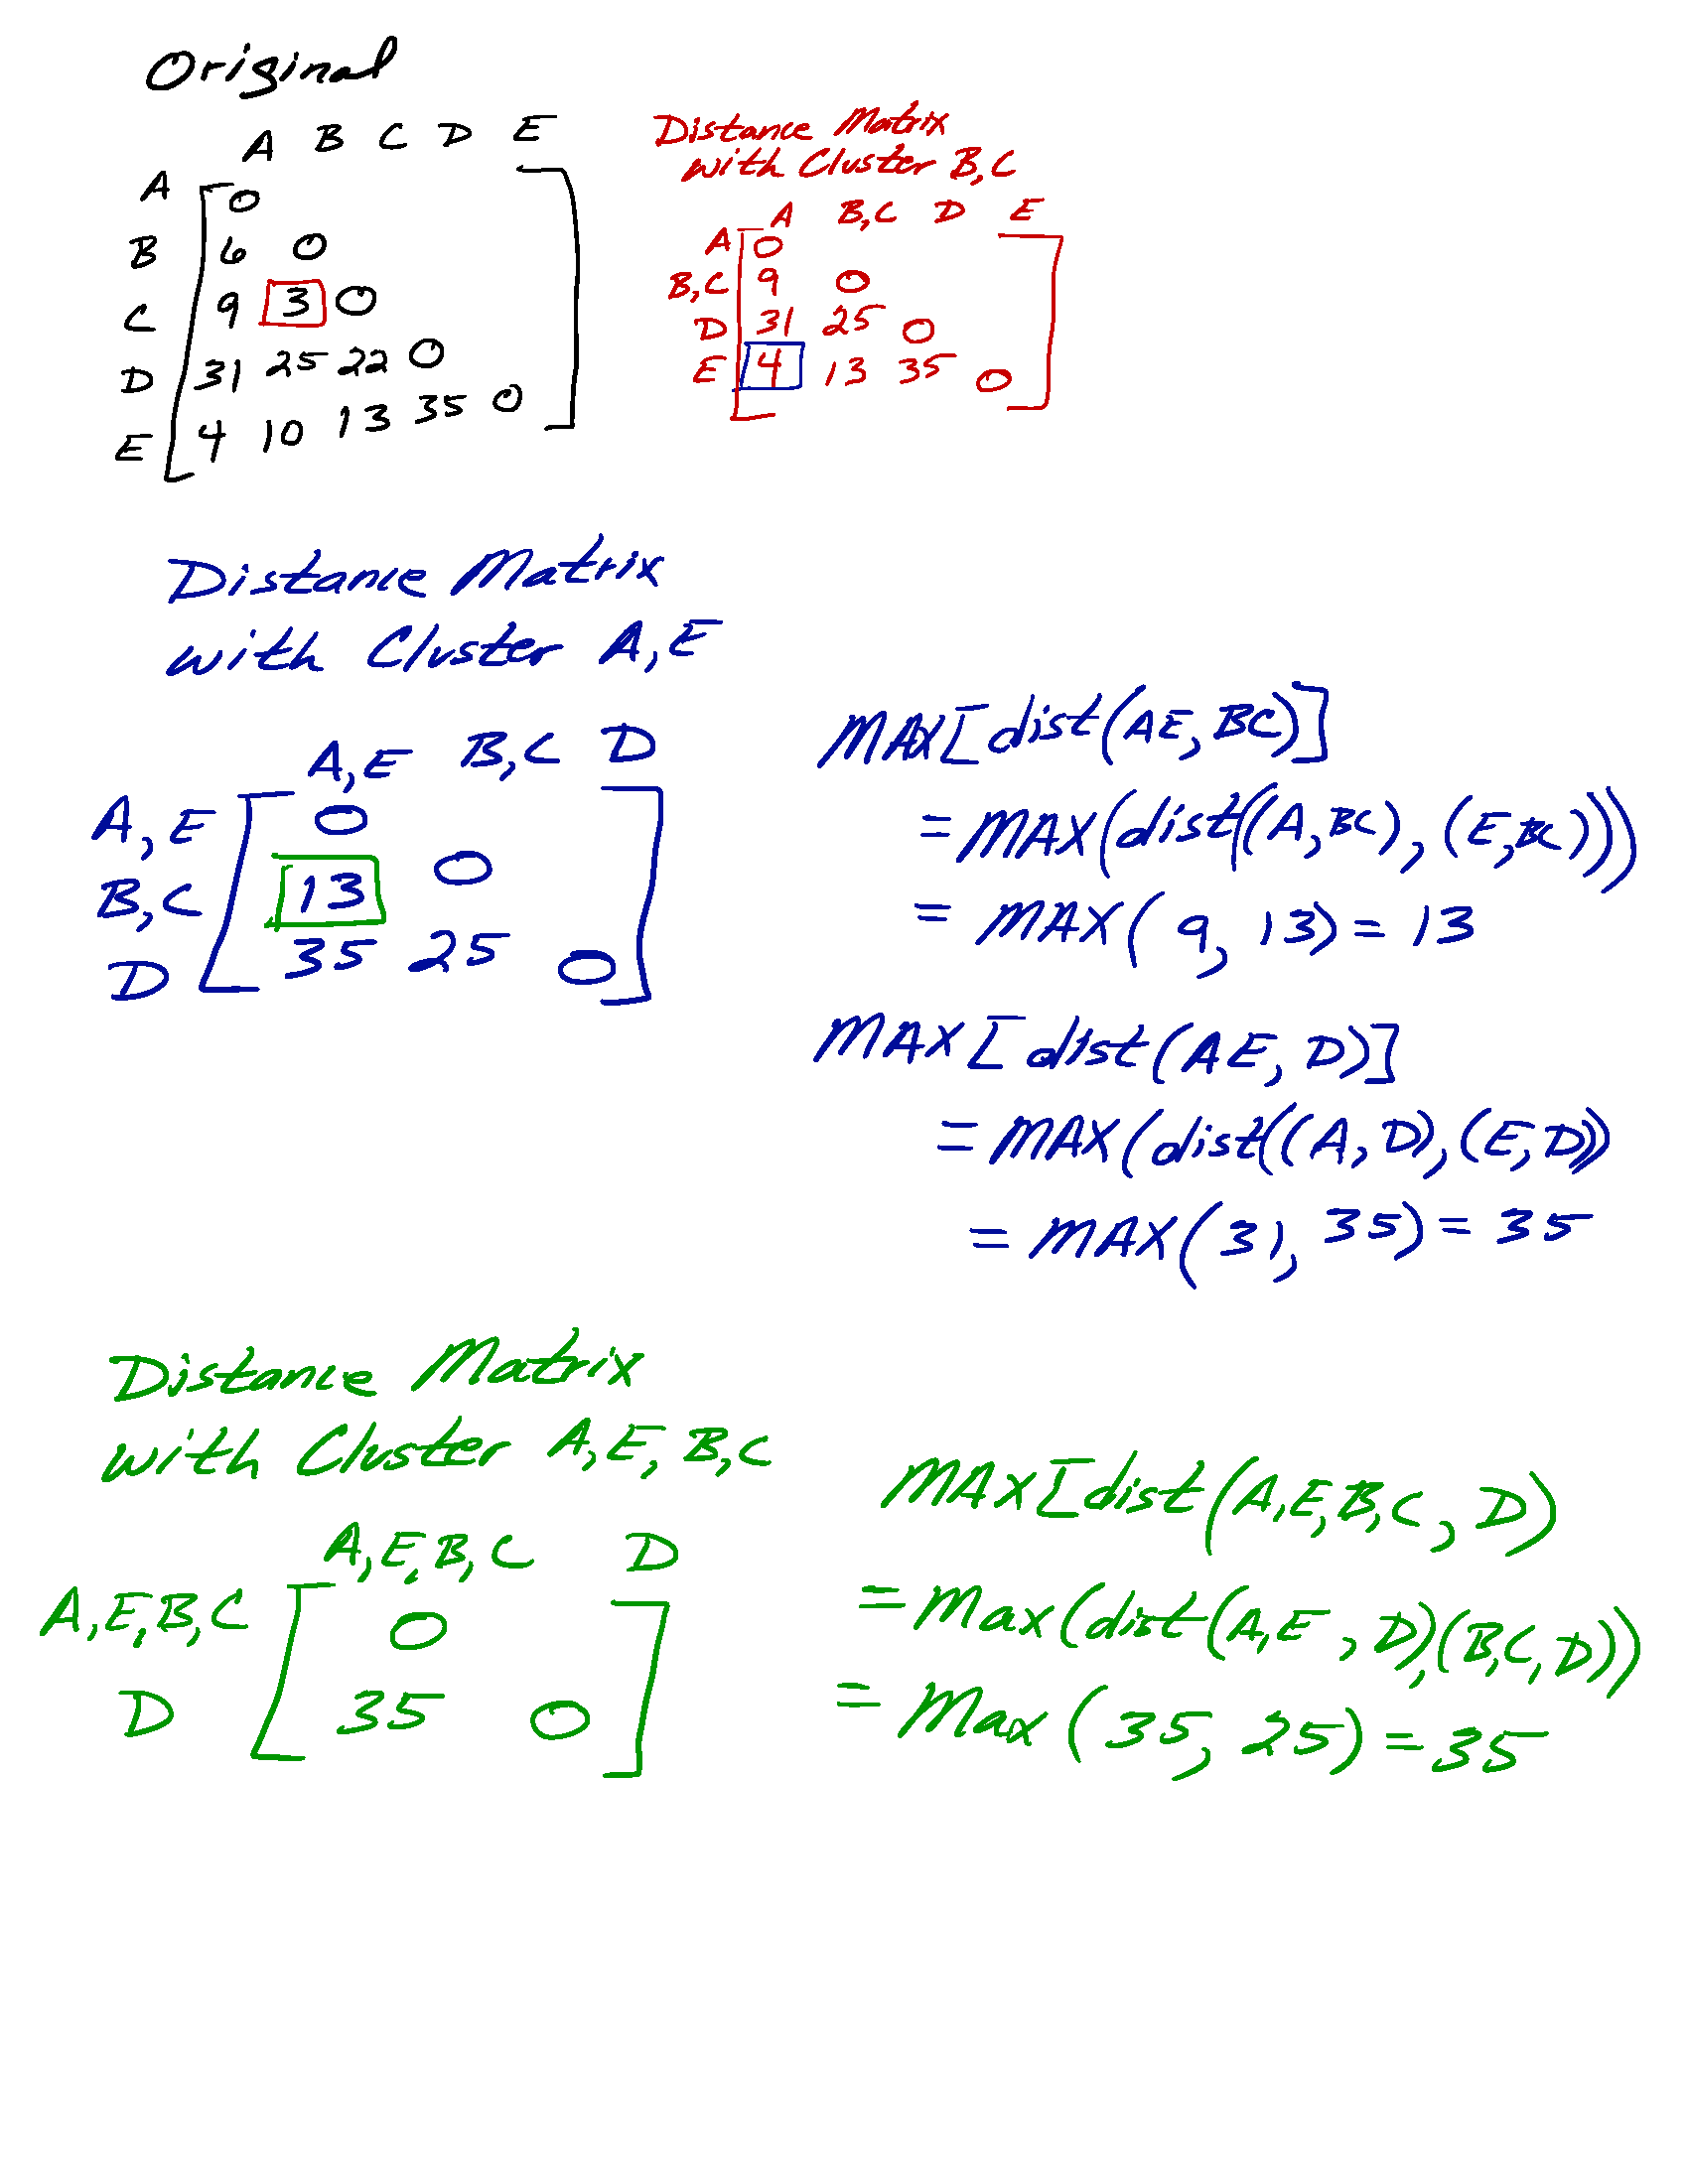 Original
A B C D E
A 0
B 6 0
C 9 3 0
D 31 25 22 0
E 4 10 13 35 0
Distance Matrix
with Cluster B,C
A B,C D E
A 0
B,C 9 0
D 31 25 0
E 4 13 35 0
Distance Matrix
with Cluster A,E
A,E B,C D
A,E 0
B,C 13 0
D 35 25 0
MAX[dist(AE, BC)]
= MAX(dist((A,BC), (E,BC)))
= MAX(9, 13) = 13
MAX[dist(AE, D)]
= MAX(dist((A,D),(E,D))
= MAX(31, 35) = 35
Distance Matrix
with Cluster A,E,B,C
A,E,B,C D
A,E,B,C 0
D 35 0
MAX[dist(A,E,B,C, D)
= Max(dist(A,E, D),(B,C,D))
= Max(35, 25) = 35